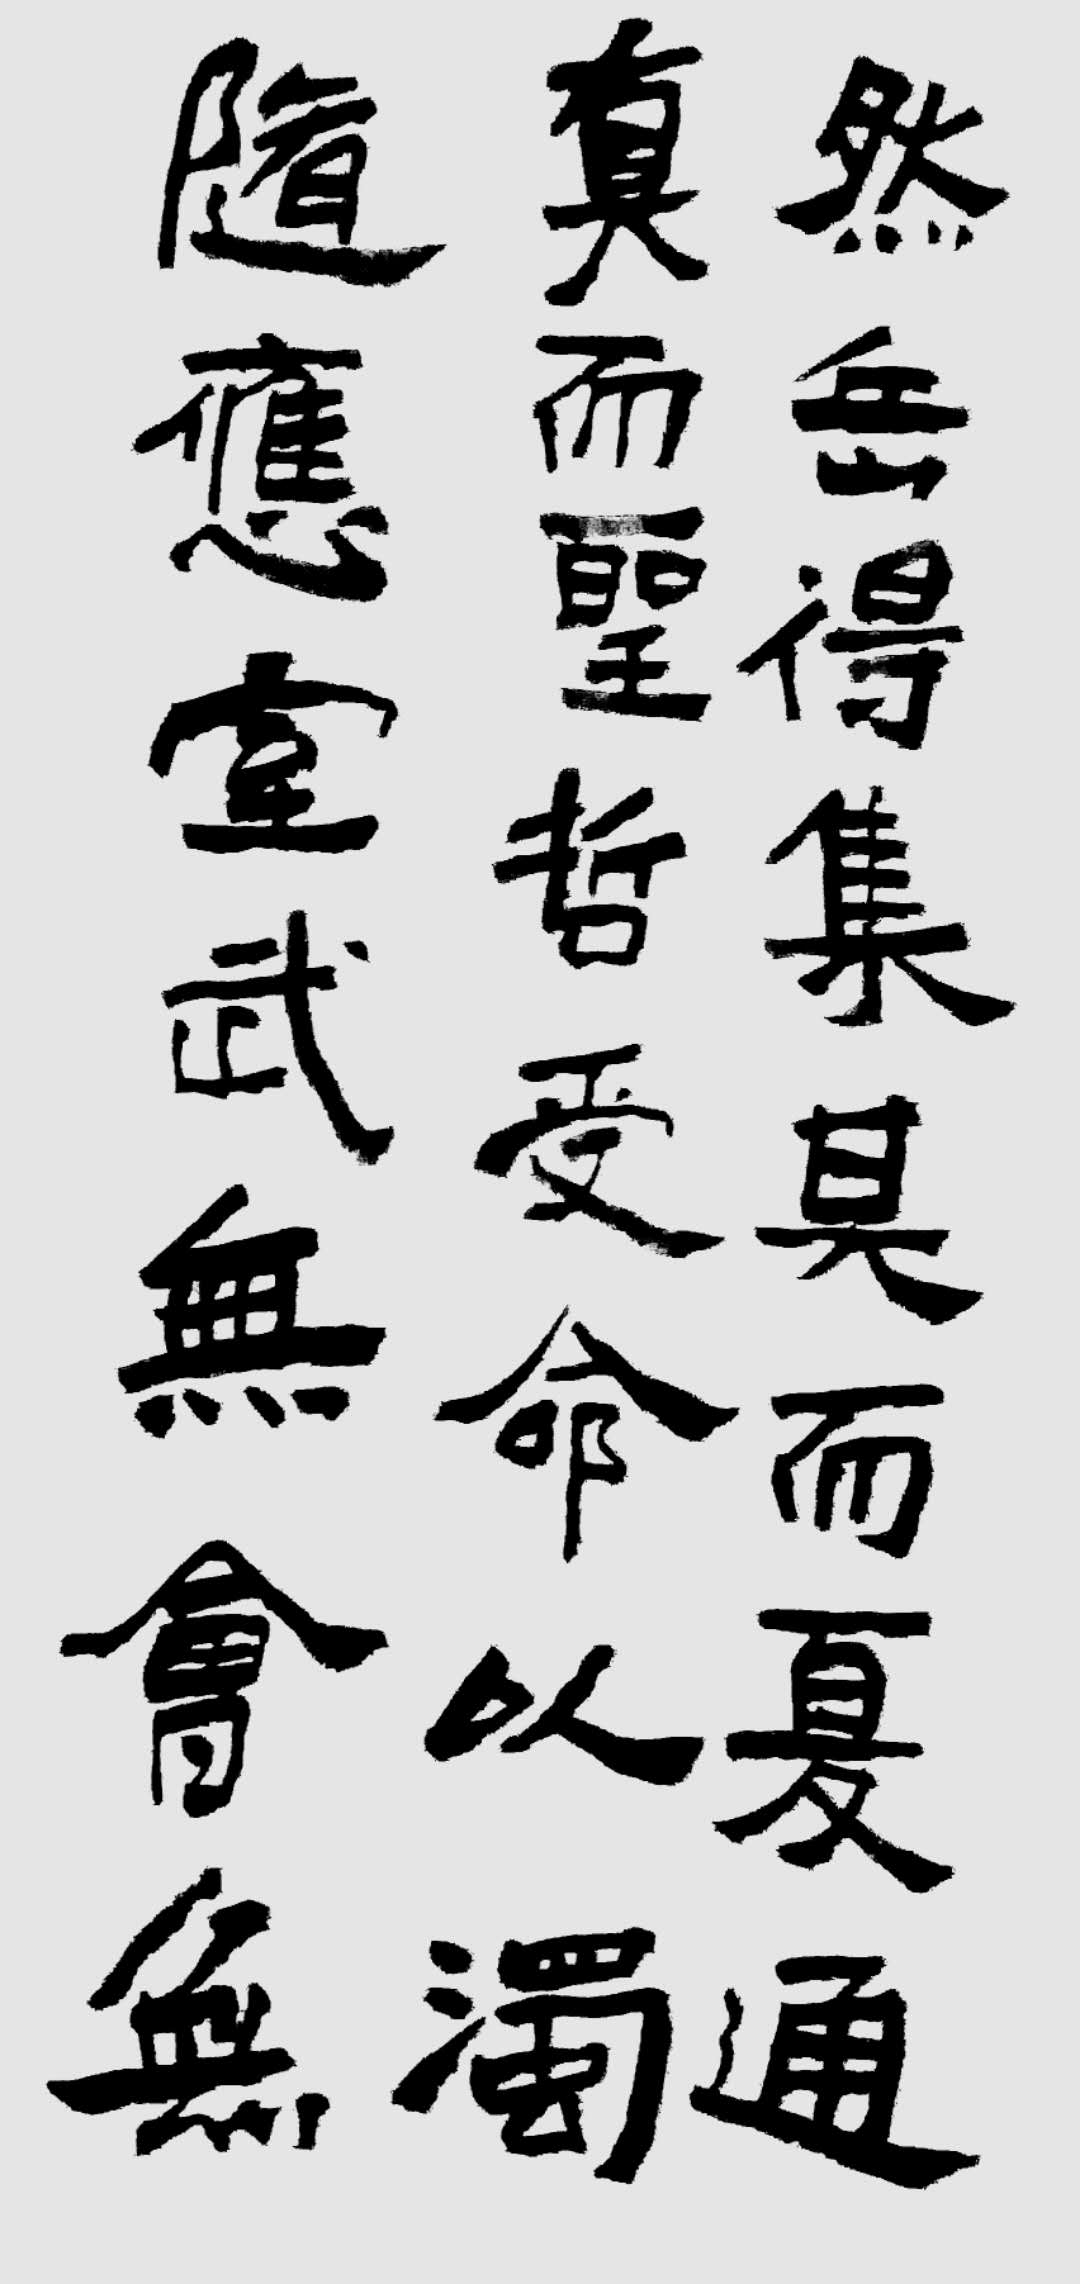 然岳得集其而夏通
真而聖哲受命以濁
隨應室武無會無